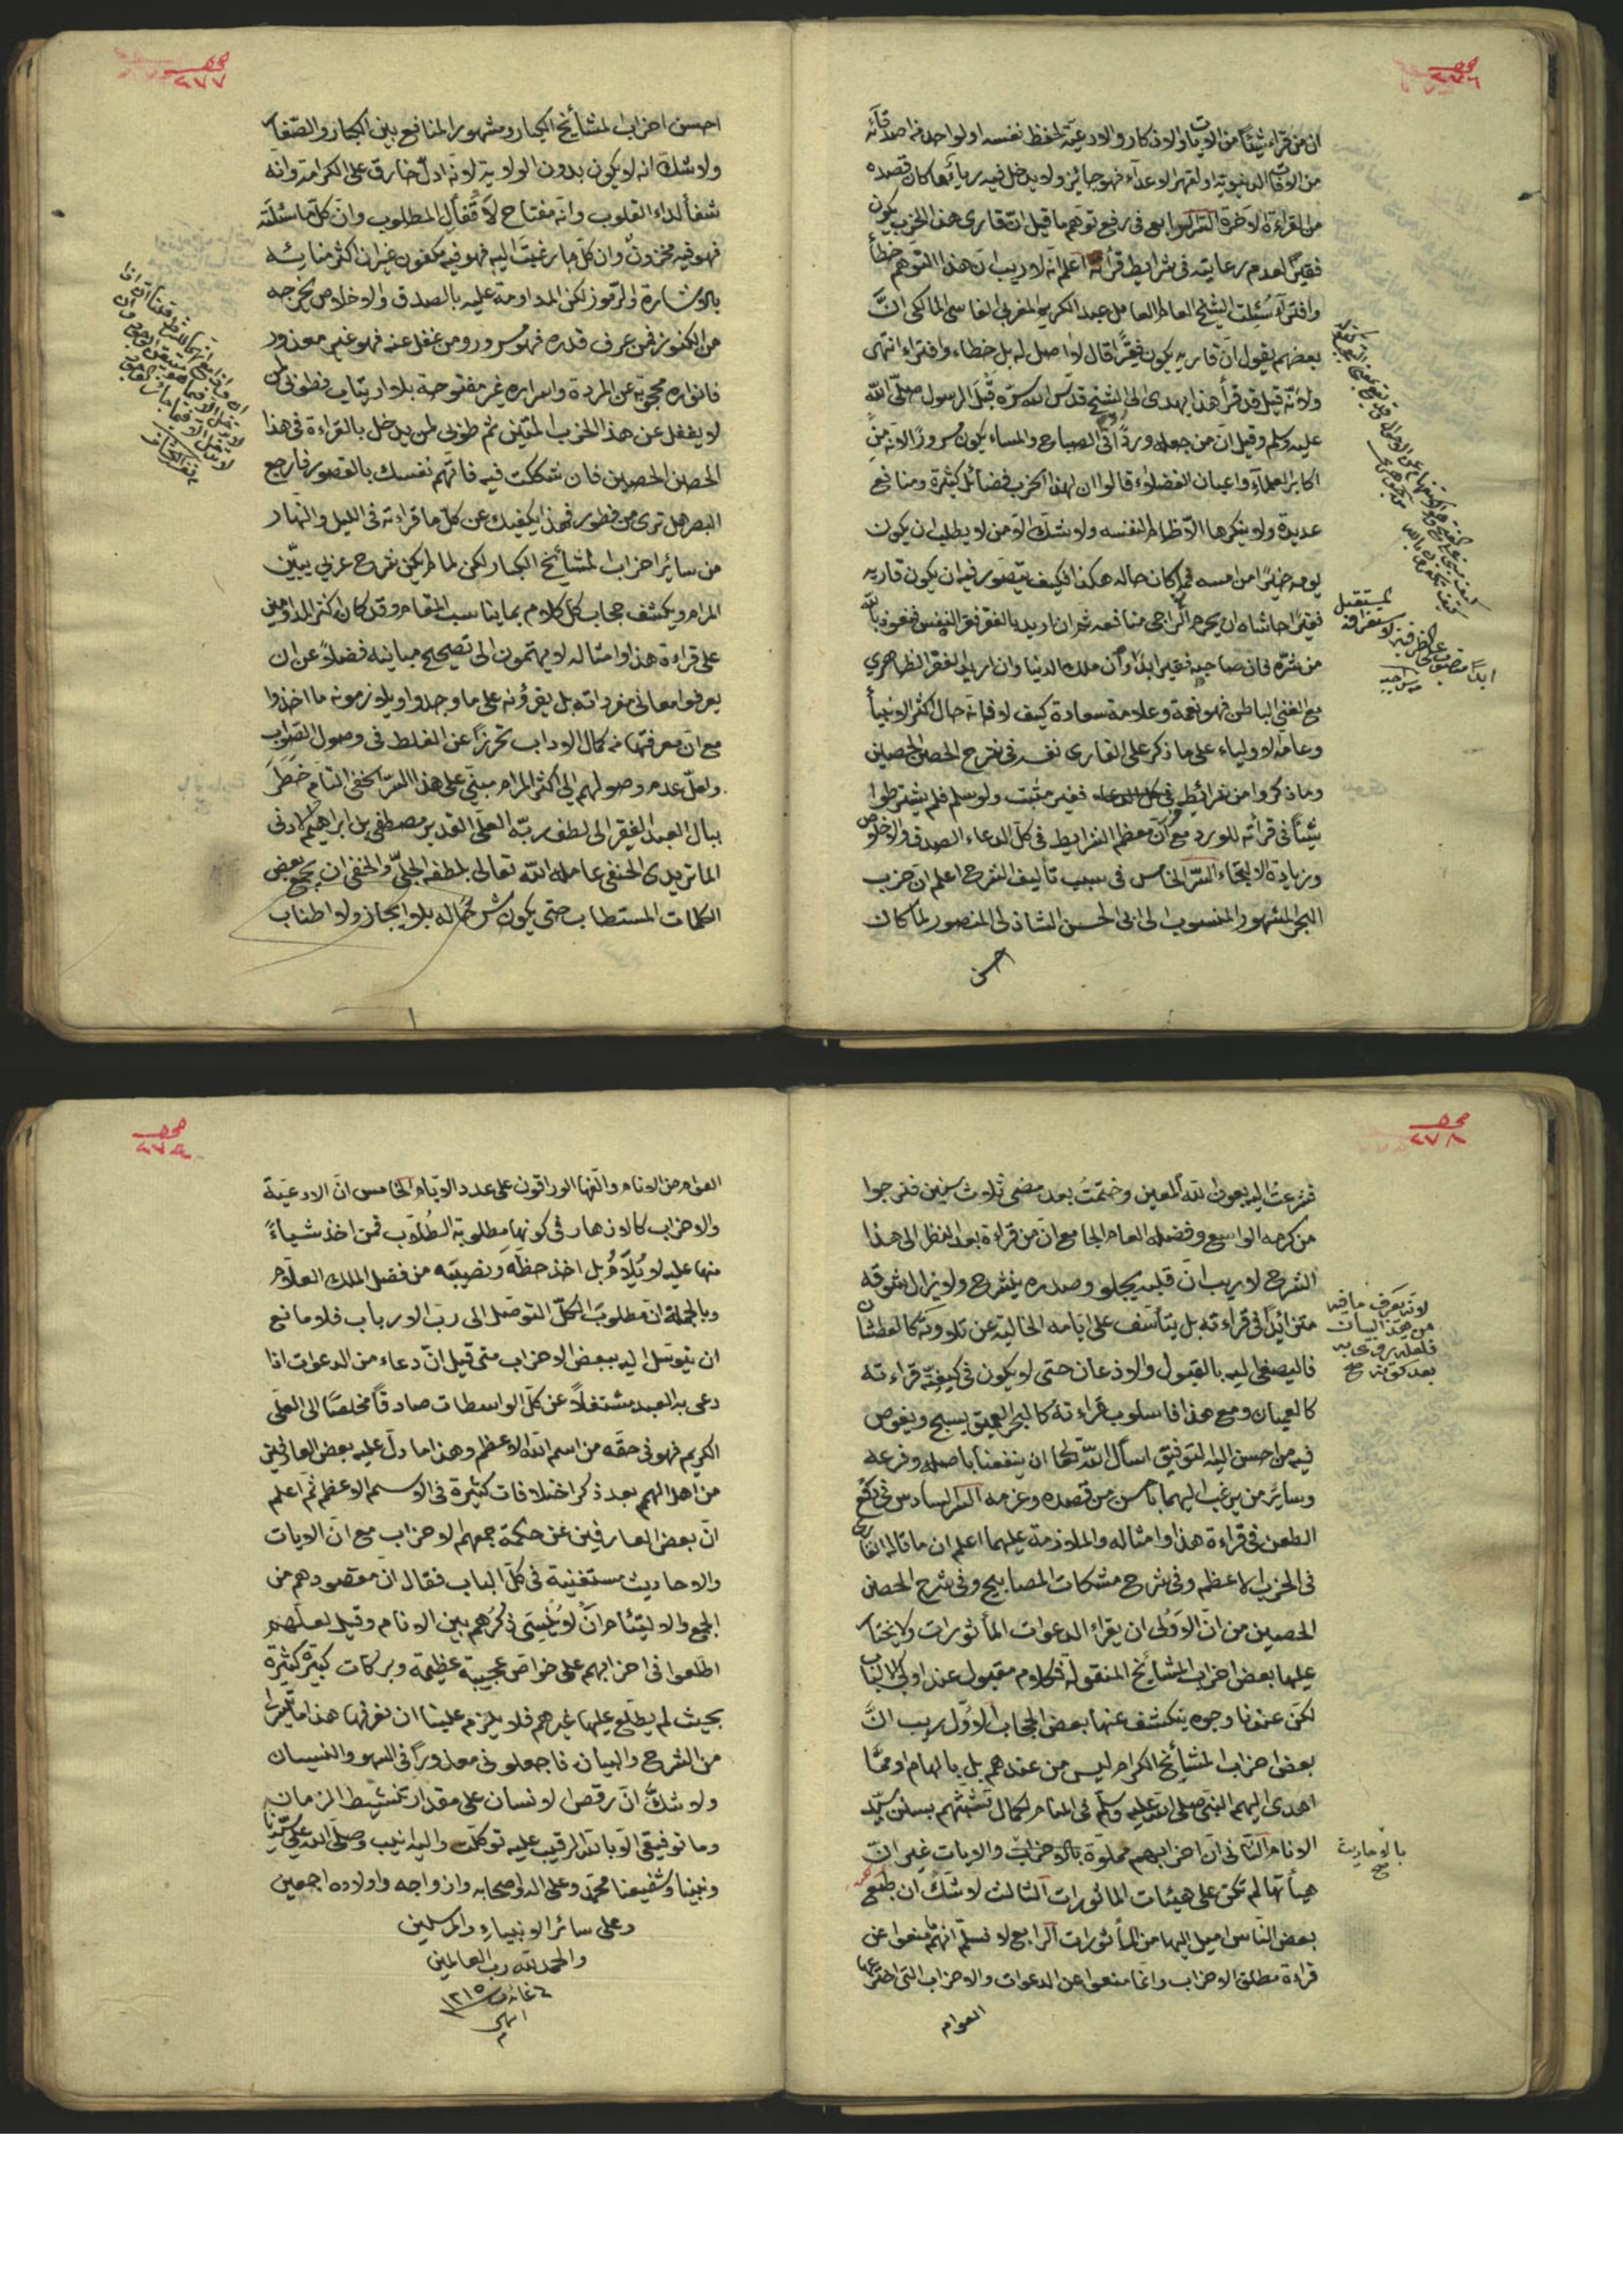 صح
٢٧٦
ان من قرأ شيئاً من الايات والاذكار والادعية لحفظ نفسه او لواحد من اصدقائه
من الافات الدنيوية او لقهر الاعداء فهو جائز ولا يدخل فيه رياء كان قصده
من القراءة الاخرة السّر الرابع فى رفع توهم ما قيل انّ قارى هذا الحزب يكون
فقيرًا لعدم رعايته فى شرايط قرأته اعلم انه لا ريب ان هذا التوهم خطأ
وافتراء سُئلت الشيخ العالم العامل عبد الكريم المغربى الفاسى المالكى انّ
بعضهم يقول انّ قاريه يكون فقيرًا قال لا اصل له بل خطاء وافتراء انتهى
ولانّه قيل قد قرأ هذا يهدى الى الشيخ قدّس الله سرّه قِبَل الرسول صلّى الله
عليه وسلم وقيل انّ من جعله وردًا فى الصباح والمساء يكون مسرورًا لانّه من
اكابر العلماء واعيان الفضلاء قالوا ان لهذا الحزب فضائل كثيرة ومنافع
عديدة ولا ينكرها الّا ظالم لنفسه ولا شكّ الّا من لا يطلب ان يكون
يومه خيرًا من امسه فما كان حاله هكذا فكيف يتصوّر فيه ان يكون قاريه
فقيرًا حاشاه ان يحرم الراجى منافعه ثم ان اريد بالفقر فقر النفس فنعوذ بالله
من شرّه فان صاحبه فقير ابدًا وان ملك الدنيا وان اريد الفقر الظاهرى
مع الغنى الباطن فهو نعمة وعلامة سعادة كيف لا فانه حال اكثر الانبيأ
وعامّة الاولياء على ما ذكر على القارى نفسه فى شرح الحصن الحصين
وما ذكروا من شرائط فى كل الدعاء فغير مثبت ولو سلم فلم يشترطوا
شيئاً فى قرأته للورد مع انّ معظم الشرايط فى كلّ الدعاء الصدق والاخلاص
وزيادة الالتجاء السّر الخامس فى سبب تأليف الشرح اعلم انّ حزب
البحر المشهور المنسوب الى ابى الحسن الشاذلى المنصور لما كان
احسن
لمستقبل
ابدًا منصوب على الظرفية لاستغراقه
صح
٢٧٧
احسن احزاب المشائخ الكبار ومشهور المنافع بين الكبار والصّغار
ولا شكّ انه لا يكون بدون الولاية لانه ادلّ خارق على الكرامة وانه
شفأ لداء القلوب وانه مفتاح لاَقْفال المطلوب وانّ كلّ ما سئلته
فهو فيه مخزونٌ وان كلّ ما رغبت اليه فهو فيه مكنون غير ان اكثر منا يشه
بالاشارة والرّموز لكن المداومة عليه بالصدق والاخلاص يخرجه
من الكنوز فمن عرف قدره فهو مسرور ومن غفل عنه فهو غير معذور
فانواره محجوبة عن المردة واسراره غير مفتوحة بلا ارتياب فطوبى لمن
لا يغفل عن هذا الحزب المتين ثم طوبى لمن يدخل بالقراءة فى هذا
الحصن الحصين فان شككت فيه فاتّهم نفسك بالقصور فارجع
البصر هل ترى من فطور فهذا يكفيك عن كلّ ما قراءته فى الليل والنهار
من سائر احزاب المشائخ الكبار لكن لما لم يكن شرح عربى يبيّن
المرام ويكشف حجاب كلّ كلام بما يناسب المقام وقد كان اكثر المداومين
على قراءة هذا وامثاله لا يهتمون الى تصحيح مبانيه فضلاً عن ان
يعرفوا معانى مفرداته بل يقرؤنه على ما وجدوا ويلازمونه ما اخذوا
مع انّ معرفتها من كمال الاداب تحرّزاً عن الغلط فى وصول الصّواب
ولعلّ عدم وصولهم الى اكثر المرام مبنىّ على هذا السّرّ الخفى التام خطَرَ
ببال العبد الفقير الى لطف ربّه العلىّ القدير مصطفى بن ابراهيم الادنى
الماتريدى الحنفى عامله الله تعالى بلطفه الجلىّ والخفى ان يجمع بعض
الكلمات المستطاب حتى يكون شرحًا له بلا ايجاز ولا اطناب
صح
٢٧٨
فشرعتُ اليه بعون الله المعين وختمتُ بعد مضى ثلاث سنين فنرجوا
من كرمه الواسع وفضله العام الجامع انّ من قراءة بعد النظر الى هذا
الشرح لا ريب انّ قلبه يجلو وصدره ينشرح ولا يزال شوقه
متزائدًا فى قراءته بل يتأسّف على ايّامه الخالية عن تلاوته كالعطشان
فاليصغ اليه بالقبول والاذعان حتى لا يكون فى كيفيّة قراءته
كالعميان ومع هذا فاسلوب قراءته كالبحر العميق يسبح ويغوص
فيه من احسن اليه التوفيق اسأل الله تعالى ان ينفعنا باصله وفرعه
وسائر من يرغب اليهما باحسن من قصده وعزمه السر السادس فى دفع
الطعن فى قراءة هذا وامثاله والملازمة عليهما اعلم ان ما قاله القارى
فى الحزب الاعظم وفى شرح مشكات المصابيح وفى شرح الحصن
الحصين من انّ الاَوْلى ان يقراء الدعوات المأثورات ولا يختار
عليها بعض احزاب المشائخ المنقولة فكلام مقبول عند اولى الالباب
لكن عندنا وجوه ينكشف عنها بعض الحجاب الاوّل لا ريب انّ
بعض احزاب المشائخ الكرام ليس من عندهم بل بالهام او ممّا
اهدى اليهم النبى صلى الله عليه وسلّم فى المنام لكمال تشبّثهم بسنن سيّد
الانام الثّانى انّ احزابهم مملوّة بالاحزاب والايات غير انّ
هيأتها لم تكن على هيئات الماثورات الثالث لا شكّ ان طبع
بعض النّاس اميل اليها من المأثورات الرابع لا نسلّم انهم منعوا عن
قراءة مطلق الاحزاب وانما منعوا عن الدعوات والاحزاب التى اخترعها
العوام
لانه يعرف ما فيه
من هذا البيان
بالاحاديث
صح
صح
٢٧٩
العوام من الانام والّفها الوراقون على عدد الايّام الخامس انّ الادعية
والاحزاب كالازهار فى كونها مطلوبة الطُلّاب فمن اخذ شيأً
منها عليه لا يُلَامُ بل اخذ حظّهَ ونصيبَه من فضل الملك العلّام
وبالجملة انّ مطلوبَ الكلّ التوصّل الى ربّ الارباب فلا مانع
ان يتوسّل اليه ببعض الاحزاب حتى قيل انّ دعاء من الدعوات اذا
دعى به العبد مشتغلاً عن كلّ الواسطات صادقًا مخلصًا الى العلّى
الكريم فهو فى حقّه من اسم الله الاعظم وهذا ما دلّ عليه بعض العارفين
من اهل الهمم بعد ذكر اختلافات كثيرة فى الاسم الاعظم ثمّ اعلم
انّ بعض العارفين عن حكمة جمعهم الاحزاب مع انّ الايات
والاحاديث مستغنية فى كلّ الباب فقال انّ مقصودهم من
الجمع والالتئام انْ لا يُنْسَى ذكرُهم بين الانام وقيل لعلّهم
اطّلعوا فى احزابهم على خواصّ عجيبة عظيمة وبركات كبيرة كثيرة
بحيث لم يطّلع عليها غيرهم فلا يلزم علينا ان نعرفها هذا ما تيسّر لى
من الشرح والبيان فاجعلونى معذورًا فى السهو والنسيان
ولا شكّ انّ رقص الانسان على مقدار تنشيط الزمان
وما توفيقى الّا بالله الرقيب عليه توكّلت واليه انيب وصلّى الله على سيّدنا
ونبينا وشفيعنا محمّد وعلى اله واصحابه وازواجه واولاده اجمعين
وعلى سائر الانبياء والمرسلين
والحمد لله رب العالمين
سنة ١٢١٥
انتهى
م